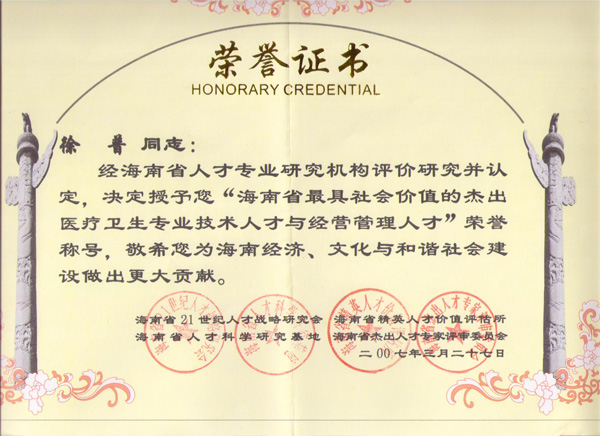 荣誉证书
HONORARY CREDENTIAL
徐 普 同志：
经海南省人才专业研究机构评价研究并认
定，决定授予您“海南省最具社会价值的杰出
医疗卫生专业技术人才与经营管理人才”荣誉
称号，敬希您为海南经济、文化与和谐社会建
设做出更大贡献。
海南省21世纪人才战略研究会 海南省精英人才价值评估所
海南省人才科学研究基地 海南省杰出人才专家评审委员会
二00七年三月二十七日